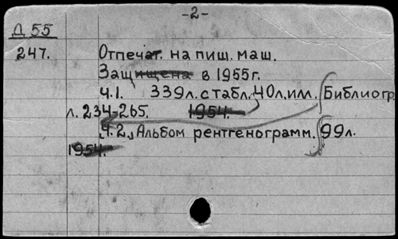 -2-
Д 55
247. Отпечат. на пиш. маш.
Защищена в 1955г.
ч.1. 339л.с табл., 40л.илл. Библиогр.
л. 234-265. 1954.
ч.2. Альбом рентгенограмм. 99л.
1954.